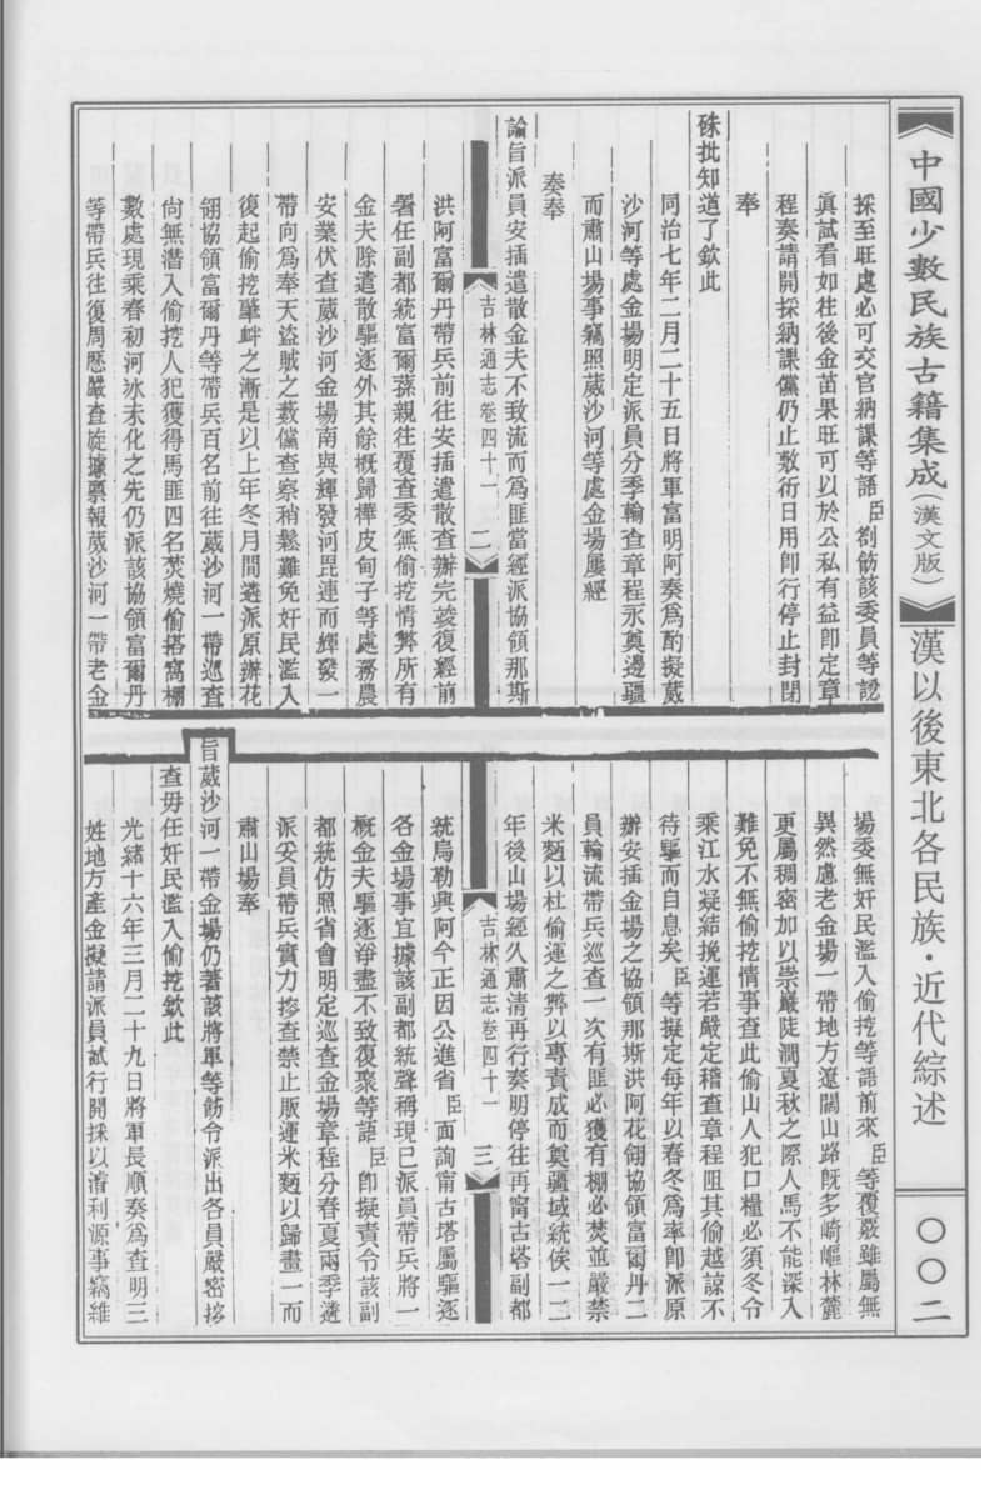 中國少數民族古籍集成(漢文版)
漢以後東北各民族·近代綜述
〇〇二
採至旺處必可交官納課等語臣劄飭該委員等認
眞試看如往後金苗果旺可以於公私有益卽定章
程奏請開採納課儻仍止敷衍日用卽行停止封閉
奉
硃批知道了欽此
同治七年二月二十五日將軍富明阿奏爲酌擬葳
沙河等處金場明定派員分季輪查章程永奠邊疆
而肅山場事竊照葳沙河等處金場屢經
奏奉
諭旨派員安插遣散金夫不致流而爲匪當經派協領那斯
吉林通志卷四十一
二
洪阿富爾丹帶兵前往安插遣散查辦完竣復經前
署任副都統富爾蓀親往覆查委無偷挖情弊所有
金夫除遣散驅逐外其餘概歸樺皮甸子等處務農
安業伏查葳沙河金場南與輝發河毘連而輝發一
帶向爲奉天盜賊之藪儻查察稍鬆難免奸民濫入
復起偷挖肇衅之漸是以上年冬月間遴派原辦花
翎協領富爾丹等帶兵百名前往葳沙河一帶巡查
尙無潛入偷挖人犯獲得馬匪四名焚燒偷搭窩棚
數處現乘春初河冰未化之先仍派該協領富爾丹
等帶兵往復周歷嚴查旋據稟報葳沙河一帶老金
場委無奸民濫入偷挖等語前來臣等覆覈雖屬無
異然慮老金場一帶地方遼闊山路旣多崎嶇林麓
更屬稠密加以崇巖陡澗夏秋之際人馬不能深入
難免不無偷挖情事查此偷山人犯口糧必須冬令
乘江水凝結挽運若嚴定稽查章程阻其偷越諒不
待驅而自息矣臣等擬定每年以春冬爲率卽派原
辦安插金場之協領那斯洪阿花翎協領富爾丹二
員輪流帶兵巡查一次有匪必獲有棚必焚並嚴禁
米麪以杜偷運之弊以專責成而奠疆域統俟一二
年後山場經久肅清再行奏明停往再甯古塔副都
吉林通志卷四十一
三
統烏勒興阿今正因公進省臣面詢甯古塔屬驅逐
各金場事宜據該副都統聲稱現已派員帶兵將一
概金夫驅逐淨盡不致復聚等語臣卽擬責令該副
都統仿照省會明定巡查金場章程分春夏兩季遴
派妥員帶兵實力搜查禁止販運米麪以歸畫一而
肅山場奉
旨葳沙河一帶金場仍著該將軍等飭令派出各員嚴密搜
查毋任奸民濫入偷挖欽此
光緒十六年三月二十九日將軍長順奏爲查明三
姓地方產金擬請派員試行開採以濬利源事竊維